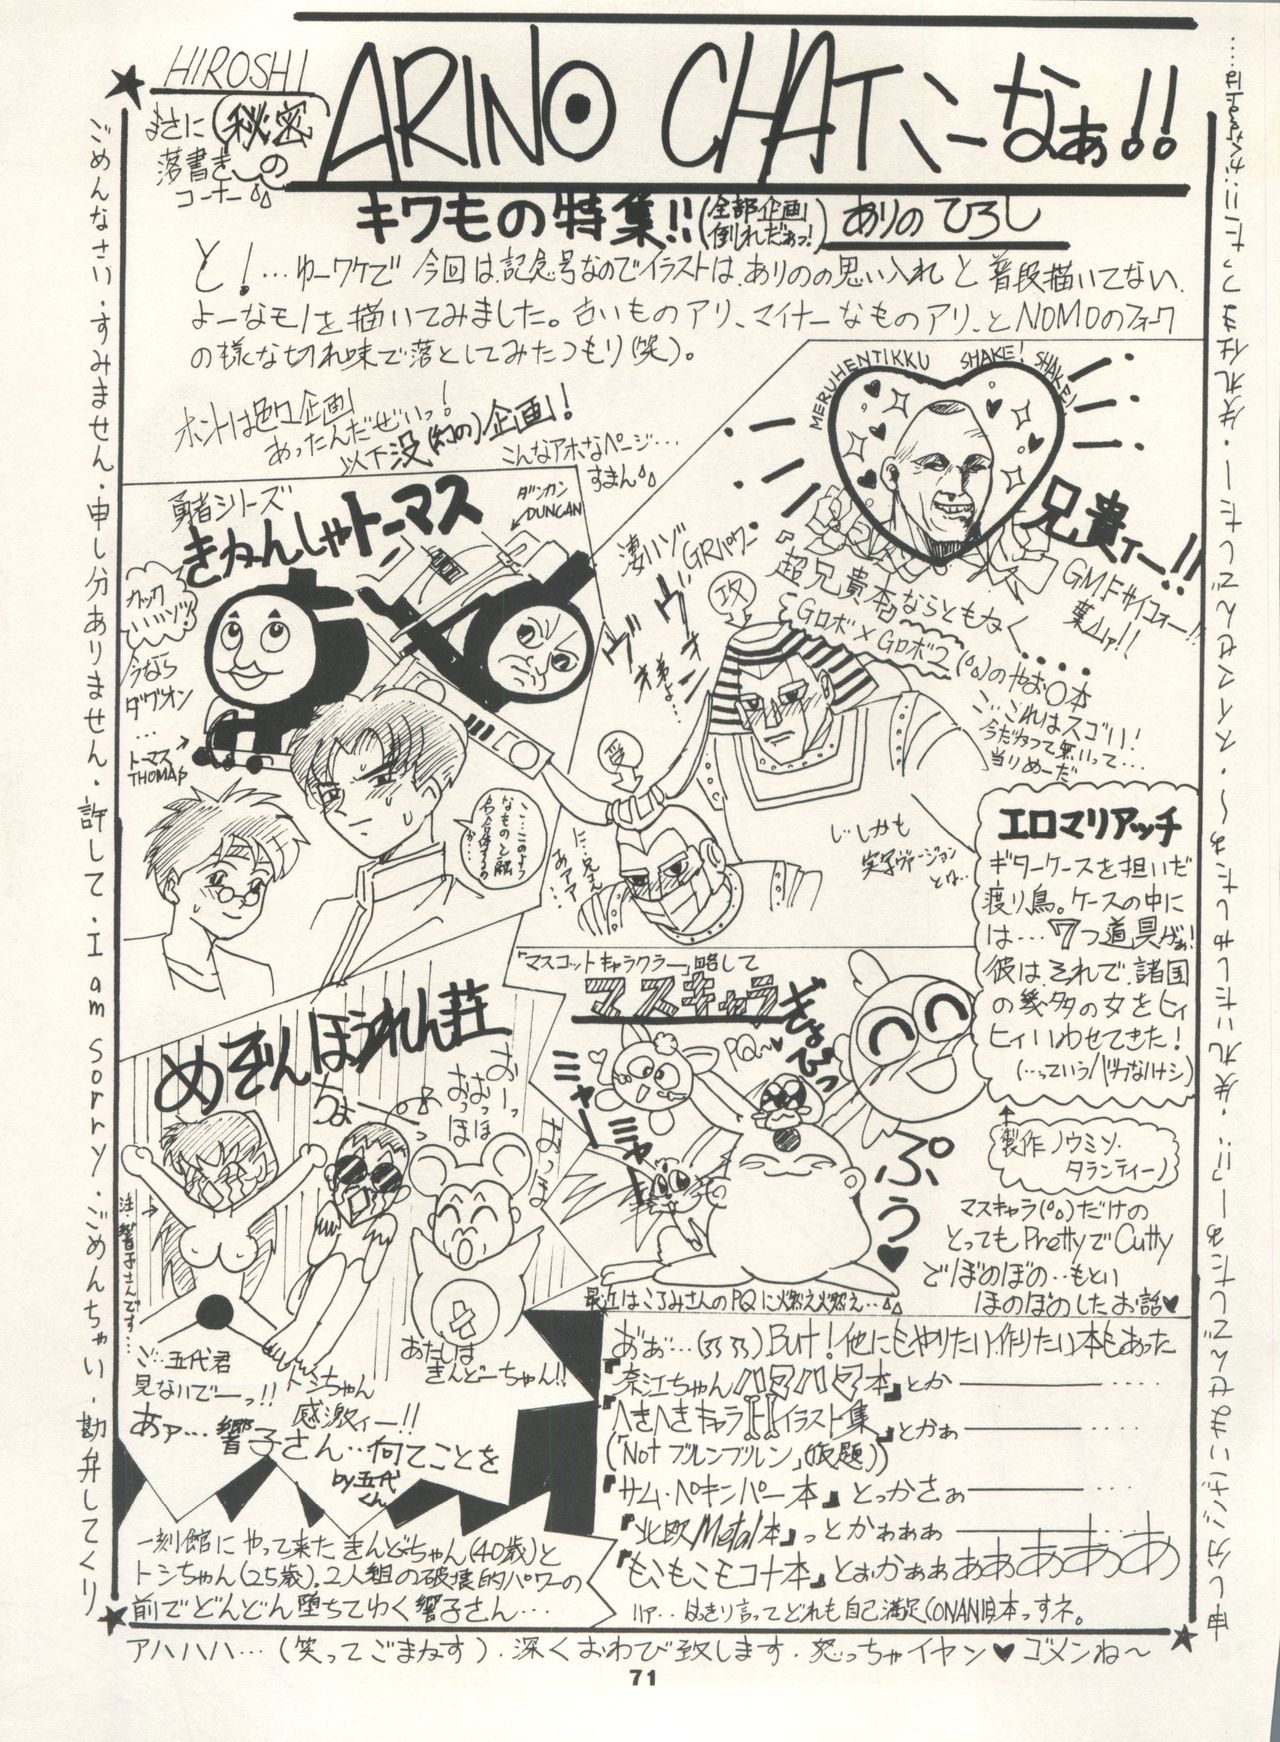 HIROSHI
ARINO CHATこーなぁ!!
まさに秘密の
落書きの
コーナー
キワもの特集!!(全部企画倒れだぁっ!)ありのひろし
と!…ゆーワケで今回は、記念号なのでイラストは、ありのの思い入れと普段描いてない
よーなモノを描いてみました。古いものアリ、マイナーなものアリ、とNOMOのフォーク
の様な切れ味で落としてみたつもり(笑)。
ホントは色々企画
あったんだぜいっ!
以下没(幻の)企画!
こんなアホなページ…
すまん
MERUHENTIKKU SHAKE! SHAKE!
兄貴ィー!!
GMFサイコォー!!
葉ムァ!!
勇者シリーズ
きかんしゃトーマス
ダンカン
DUNCAN
カックいいゾ!
今なら
ダグオン
…トーマス
THOMAS
こ…このような
ものと融合合体するのか…
凄いゾ
GRパワー
『超兄貴本』ならともかく
Gロボ×Gロボ2のやお○本
攻
受
ヴヴ
オ
弟よ…
に、兄さん
あアア…
…これはスゴい!
今だかつて無いって…
当りめーだ
しかも
実写ヴァージョン
とは…
エロマリアッチ
ギターケースを担いだ
渡り鳥。ケースの中に
は…7つ道具がぁ!
彼は、それで、諸国
の幾多の女をヒィ
ヒィいわせてきた!
(…っていうバカなハナシ)
製作 ノウミソ・
タランティーノ
「マスコットキャラクラー」略して
マスキャラ
ぎょぴっ
PQ〜
ミャーミャー
ぷぅ♥
最近はころみさんのPQに燃え燃え…
マスキャラだけの
とってもPrettyでCutty
でぼのぼの…もとい
ほのぼのしたお話♥
めぞんほうれん荘
ちょ
おーっ
おっほ
おっほ
おっほ
注・響子さんです…
ご…五代君
見ないでーっ!!
トシちゃん
感激ィー!!
あたしは
きんどーちゃん!!
あァ…響子さん…何てことを
by五代くん
一刻館にやって来たきんどーちゃん(40歳)と
トシちゃん(25歳)。2人組の破壊的パワーの
前でどんどん堕ちてゆく響子さん…
おぉ…But!他にもやりたい、作りたい本もあった
『奈江ちゃんハマハマ本』とか
『へきへきキャライラスト集』とかぁ
(「Notブルンブルン」(仮題))
『サム・ペキンパー本』とっかさぁ
『北欧Metal本』っとかぁぁぁ
『もこもこモコナ本』とぉかぁぁぁぁぁぁぁぁ
ハァ…はっきり言ってどれも自己満足(ONANI)本っすネ。
ごめんなさい・すみません・申し分ありません・許して・I am sorry・ごめんちゃい・勘弁してくり
アハハハ…(笑ってごまかす)・深くおわび致します・怒っちゃイヤン♥ゴメンね〜
71